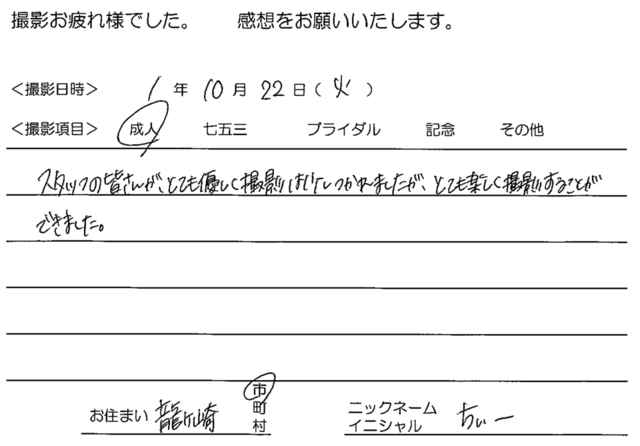 撮影お疲れ様でした。 感想をお願いいたします。
<撮影日時> 1 年 10 月 22 日(火)
<撮影項目> 成人 七五三 ブライダル 記念 その他
スタッフの皆さんが、とても優しく撮影は つかれましたが、とても楽しく撮影することが
できました。
お住まい 龍ヶ崎 市町村 ニックネーム イニシャル ちぃー